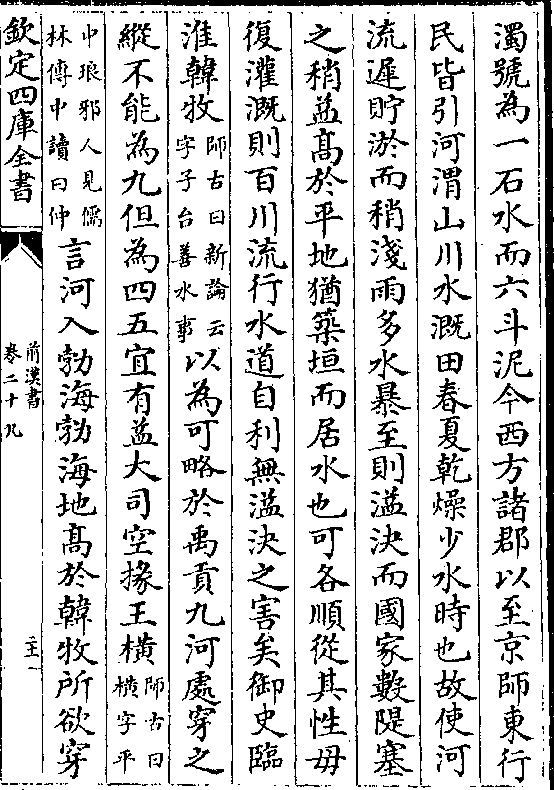 濁號為一石水而六斗泥今西方諸郡以至京師東行
民皆引河渭山川水溉田春夏乾燥少水時也故使河
流遲貯淤而稍淺雨多水暴至則溢決而國家數隄塞
之稍益髙於平地猶築垣而居水也可各順從其性毋
復灌溉則百川流行水道自利無溢決之害矣御史臨
淮韓牧師古曰新論云字子台善水事以為可略於禹貢九河處穿之
縱不能為九但為四五宜有益大司空掾王横師古曰横字平
中琅邪人見儒林傳中讀曰仲言河入勃海勃海地髙於韓牧所欲穿
欽定四庫全書
前漢書
卷二十九